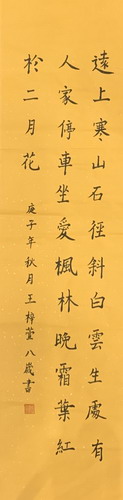 遠上寒山石徑斜白雲生處有
人家停車坐愛楓林晚霜葉紅
於二月花
庚子年秋月王梓萱八歲書